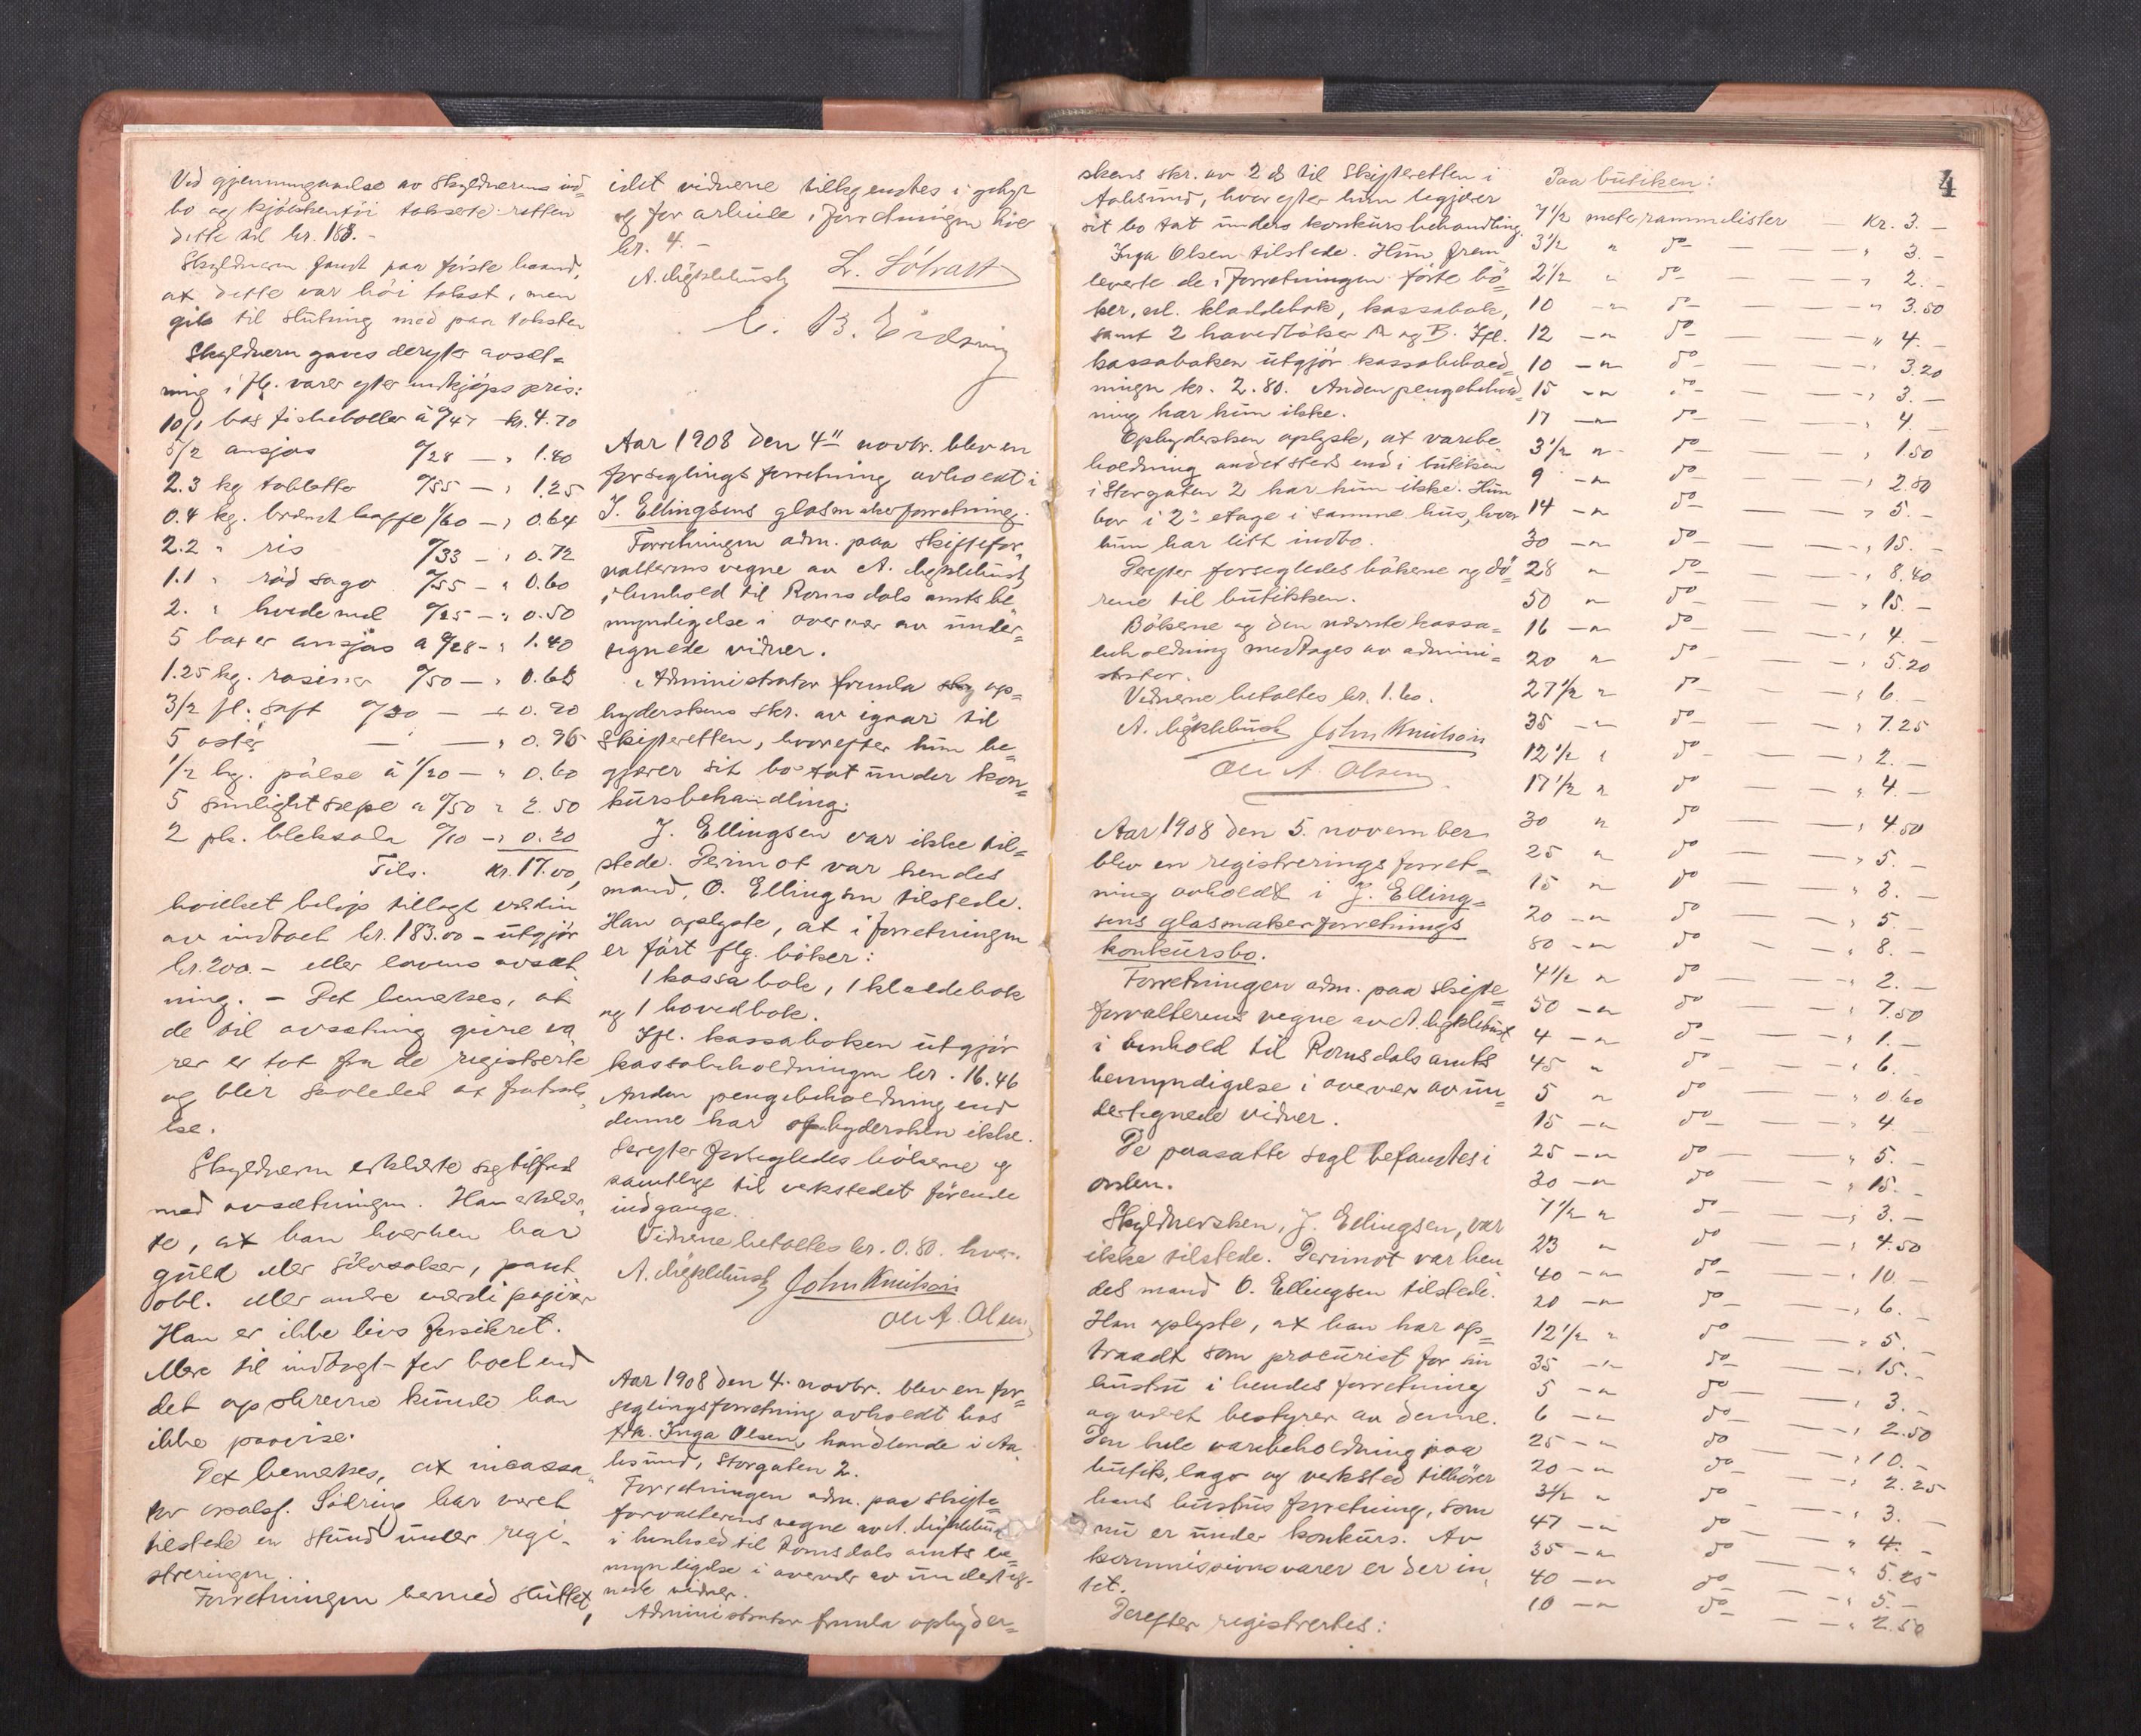 Ved gjennemgaaelse av skyldnerens ind=
bo og kjøkkentøi takserte retten
dette til kr. 183.-
Skyldneren fandt paa første haand,
at dette var høi takst, men
gik til slutning med paa taksten
Skyldneren gaves derefter avsæt=
ning i flg. varer efter indkjøpspris:
10/1 bos fiskeboller à 0/47 - kr. 4.70
5/2 ansjos 0/28 - " 1.40
2.3 kg tabletter 0/55 - " 1.25
0.4 kg. brændt kaffe 1/60 - " 0.64
2.2 " ris 0/33 - " 0.72
1.1 " rød sago 0/55 - " 0.60
2. " hvedemel 0/25 - " 0.50
5 bokser ansjos à 0/28 - " 1.40
1.25 kg. rosiner 0/50 - " 0.63
3/2 fl. saft 0/30 - " 0.90
5 oster - " 0.96
1/2 kg. pølse à 1/20 - " 0.60
5 sunlightsæpe à 0/50 " 2.50
2 pk. bleksoda 0/10 - " 0.20
Tils. kr. 17.00,
hvilket beløp tillagt værdien
av indboet kr. 183.00 - utgjør
kr. 200.- eller lovens avsæt
ning. - Det bemerkes, at
de til avsætning givne va
rer er tat fra de registrerte
og blir saaledes at fratræk
ke.
Skyldneren erklærte sig tilfreds
med avsætningen. Han erklær
te, at han hverken har
guld eller sølvsaker, pant
obl. eller andre værdipapirer
Han er ikke livsforsikret.
Mere til indtægt for boet end
det opskrevne kunde han
ikke paavise.
Det bemerkes, at incassa
tor Sølring har været
tilstede en stund under regi-
streringen.
Forretningen hermed sluttet,
idet vidnerne tilkjendtes i gebyr
og for arbeide i forretningen hver
kr. 4.-
A. Myklebust L. Solvast
C. B. Erdsvig
Aar 1908 den 4" novbr. blev en
forseglingsforretning avholdt i
J. Ellingsens glasmakerforretning.
Forretningen adm. paa skiftefor=
valterens vegne av A. Myklebust
i henhold til Romsdals amts be
myndigelse i overvær av under=
tegnede vidner.
Administrator fremla op=
byderskens skr. av igaar til
Skifteretten, hvorefter hun be=
gjærer sit bo tat under kon=
kursbehandling.
J. Ellingsen var ikke til=
stede. Derimot var hendes
mand, O. Ellingsen tilstede.
Han oplyste, at i forretningen
er ført flg. bøker:
1 kassabok, 1 kladdebok
og 1 hovedbok.
Ifl. kassaboken utgjør
kassabeholdningen kr. 16.46
Anden pengebeholdning end
denne har opbydersken ikke.
Derefter forsegledes bøkerne og
samtlige til verkstedet førende
indgange.
Vidnerne betaltes kr. 0.80. hver.
A. Myklebust John Knutson
Ole A. Olsen
Aar 1908 den 4. novbr. blev en for=
seglingsforretning avholdt hos
frk. Inga Olsen, handlende i Aa
lesund, Storgaten 2.
Forretningen adm. paa skifte=
forvalterens vegne av A. Myklebust
i henhold til Romsdals amts be=
myndigelse i overvær av underteg-
nede vidner.
Administrator fremla opbyder=
skens skr. av 2 ds til Skifteretten i
Aalesund, hvorefter hun begjærer
sit bo tat under konkursbehandling.
Inga Olsen tilstede. Hun frem
leverte de i forretningen førte bø=
ker, nl. kladdebok, kassabok,
samt 2 hovedbøker A og B. Ifl.
kassaboken utgjør kassabehold=
ningen kr. 2.80. Anden pengebehold=
ning har hun ikke.
Opbydersken oplyste, at varebe
holdning andetsteds end i butikken
i Storgaten 2 har hun ikke. Hun
bor i 2den etage i samme hus, hvor
hun har litt indbo.
Derefter forsegledes bøkerne og dø=
rene til butikken.
Bøkerne og den nævnte kassa=
beholdning medtages av admini=
strator.
Vidnerne betaltes kr. 1.60.
A. Myklebust John Knutson
Ole A. Olsen
Aar 1908 den 5. november
blev en registreringsforret=
ning avholdt i J. Elling=
sens glasmakerforretnings
konkursbo.
Forretningen adm. paa skifte=
forvalterens vegne av A. Myklebust
i henhold til Romsdals amts
bemyndigelse i overvær av un=
dertegnede vidner.
De paasatte segl befandtes i
orden.
Skyldnersken, J. Ellingsen, var
ikke tilstede. Derimot var hen
des mand O. Ellingsen tilstede.
Han oplyste, at han har op=
traadt som procurist for sin
hustru i hendes forretning
og været bestyrer av denne.
Den hele varebeholdning paa
butik, lager og verksted tilhører
hans hustrus forretning, som
nu er under konkurs. Av
kommissionsvarer er der in
tet.
Derefter registrertes:
4
Paa butiken:
7 1/2 meter rammelister - kr. 3.-
3 1/2 " do - " 3.-
2 1/2 " do - " 2.-
10 - " do - " 3.50
12 - " do - " 4.-
10 - " do - " 3.20
15 - " do - " 3.-
17 - " do - " 4.-
3 1/2 " do - " 1.50
9 - " do - " 2.80
14 - " do - " 5.-
30 - " do - " 15.-
28 " do - " 8.40
50 " do - " 15.-
16 - " do - " 4.-
20 " do - " 5.20
27 1/2 " do - " 6.-
35 - " do - " 7.25
12 1/2 " do - " 2.-
17 1/2 " do - " 4.-
30 " do - " 4.50
25 " do - " 5.-
15 " do - " 3.-
20 - " do - " 5.-
80 - " do - " 8.-
4 1/2 " do - " 2.-
50 - " do - " 7.50
4 - " do - " 1.-
45 " do - " 6.-
5 " do - " 0.60
15 - " do - " 4.-
25 - " do - " 5.-
30 - " do - " 15.-
7 1/2 " do - " 3.-
23 " do - " 4.50
40 - " do - " 10.-
20 - " do - " 6.-
12 1/2 " do - " 5.-
35 - " do - " 15.-
5 - " do - " 3.-
6 - " do - " 2.50
25 - " do - " 10.-
20 - " do - " 2.25
3 1/2 " do - " 3.-
47 - " do - " 4.-
35 - " do - " 5.25
40 - " do - " 5.-
10 - " do - " 2.50